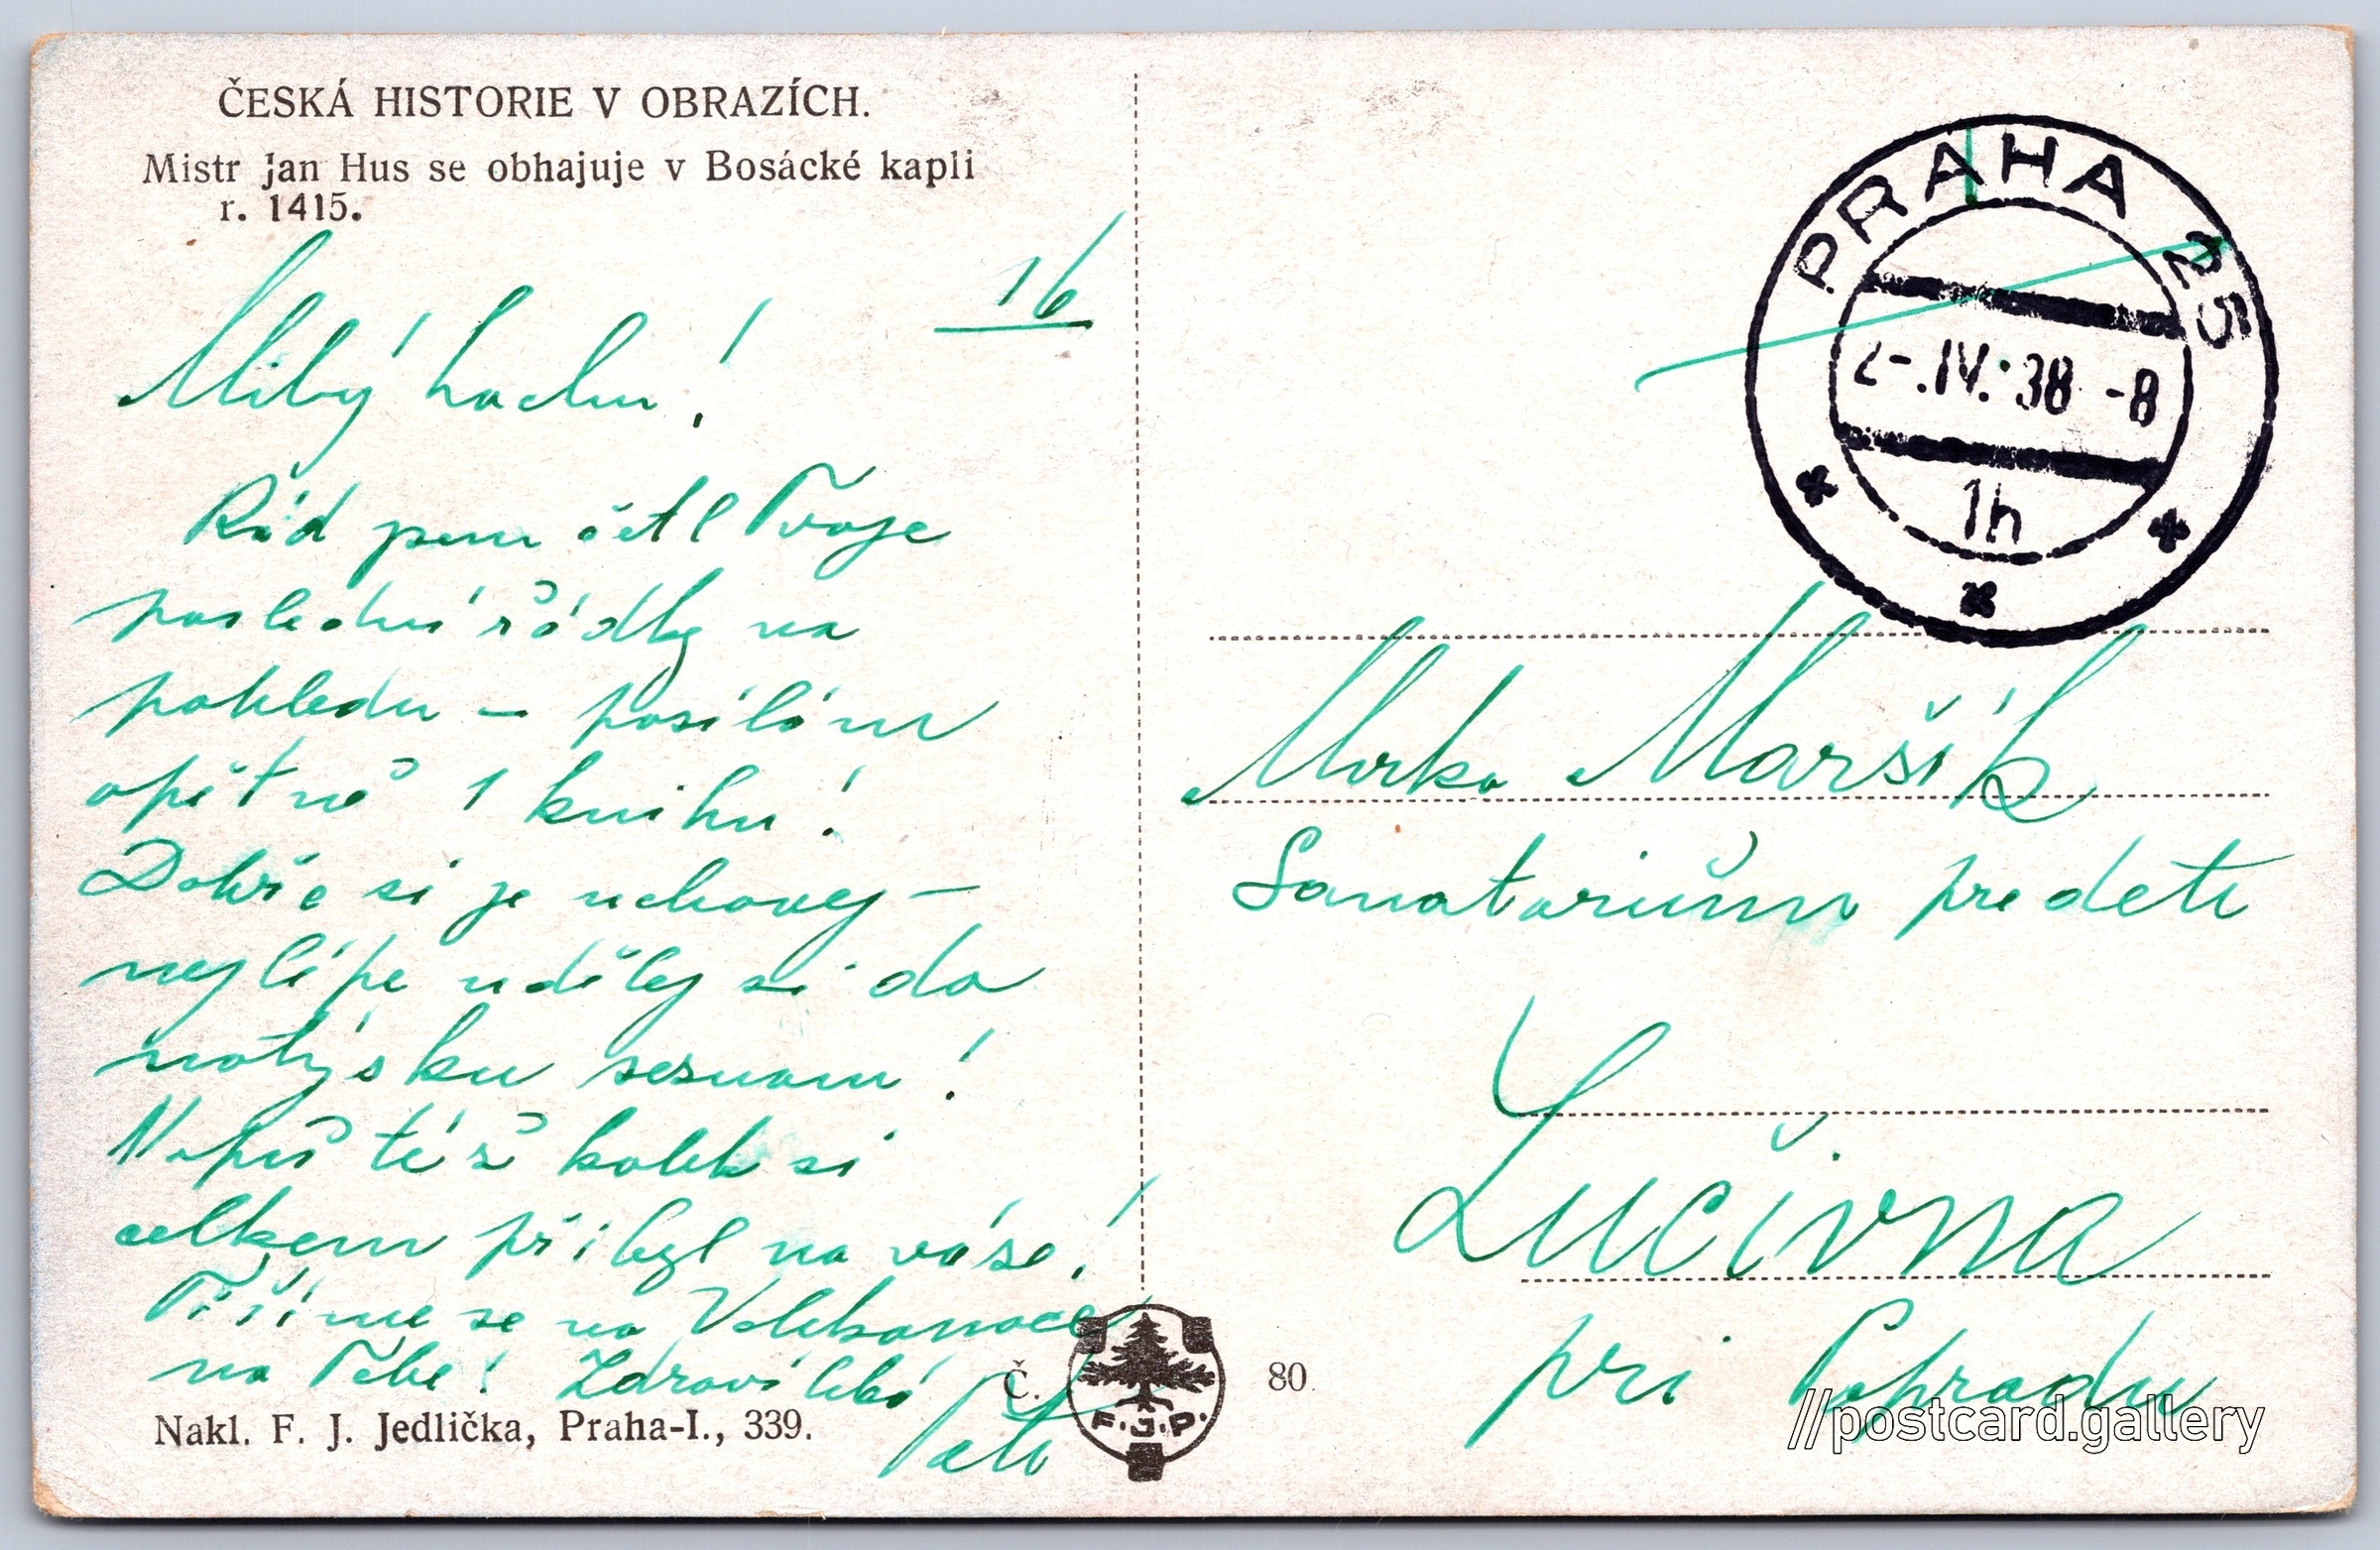 ČESKÁ HISTORIE V OBRAZÍCH.
Mistr Jan Hus se obhajuje v Bosácké kapli
r. 1415.
16
Milý hochu!
Rád jsem četl Tvoje
poslední řádky na
pohledu — posílám
opětně 1 knihu!
Dobře si je uchovej —
nejlépe udělej si do
notýsku seznam!
Napiš též kolik si
celkem přibyl na váze!
Těšíme se na Velikonoce
na Tebe! Zdraví líbá
Nakl. F. J. Jedlička, Praha-I., 339.
Č.
F.J.P.
80
PRAHA 25
2-.IV.38 -8
1h
Mirko Maršík
Sanatorium pre deti
Lučivna
pri Popradu
//postcard.gallery